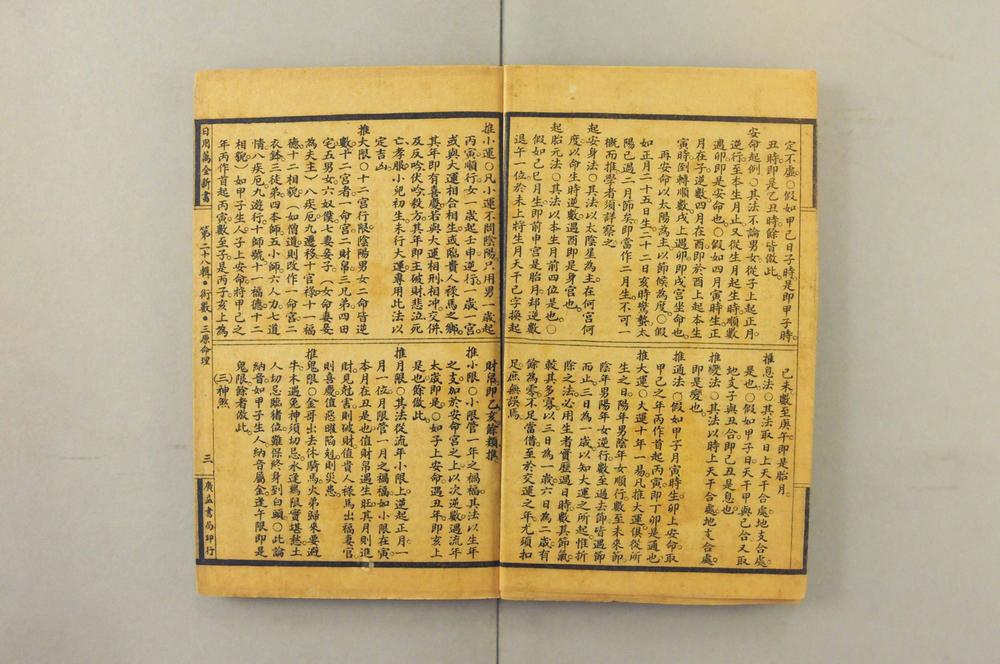 定不虛○假如甲己日子時是即甲子時
丑時即是乙丑時餘皆倣此
安命起例○其法不論男女從子上起正月
逆行至本生月止又從生月起生時順數
遇卯即是安命也○假如四月寅時生正
月在子逆數四月在酉即於酉上起本生
寅時倒轉順數戌上遇卯即戌宮坐命也
再安命以太陽為主以節候為度○假
如正月二十五日生二十二日亥時驚蟄太
陽已過二月節矣即當作二月生不可一
槪而推學者須詳察之
起安身法○其法以太陰星為主在何宮何
度以命生時逆數遇酉即是身宮也
起胎元法○其法以胎生月前四位是也○
假如己巳月生即前申宮是胎月却逆數
退午一位於未上將生月天干己字換起
己未數至庚午即是胎月
推息法○其法取日上天干合處地支合處
是也○假如甲子日天干甲與己合又取
地支子與丑合即己丑是息也
推變法○其法以時上天干合處地支合處
即是變也
推通法○假如甲子月寅時生卯上安命取
甲己之年丙作首起丙寅即丁卯是通也
推大運○大運十年一易凡推大運俱從所
生之日陽年男陰年女順行數至未來節
陰年男陽年女逆行數至過去節皆遇節
而止三日為一歲以知大運之所起惟折
除之法必用生者實歷過日時數其節氣
較其多寡以三日為一歲六日為二歲有
餘為零不足當借至於交運之年尤須扣
足庶無誤焉
推小運○凡小運不問陰陽只用男一歲起
丙寅順行女一歲起壬申逆行一歲一宮
或與大運相合相生或臨貴人祿馬之鄉
其年即有喜慶若與大運相刑相冲交併
及反吟伏吟殺方其年即主破財悲泣死
亡孝服小兒初生未行大運專用此法以
定吉凶
推大限○十二宮行限陰陽男女二命皆逆
數十二宮者一命宮二財帛三兄弟四田
宅五男女六奴僕七妻子(女命妻妾
為夫主)八疾厄九遷移十官祿十一福
德十二相貌(如僧道則改作一命宮二
衣鉢三徒弟四本師五小師六人力七道
情八疾厄九遊行十師號十一福德十二
相貌)如甲子生人子上安命將甲己之
年丙作首起丙寅數至子是丙子亥上為
財帛即乙亥餘類推
推小限○小限管一年之禍福其法以生年
之支加於安命宮之上以次逆數遇流年
太歲即是○如子上安命遇丑年即亥上
是也餘倣此
推月限○其法從流年小限上逆起正月一
月一位月限管一月之禍福如小限在寅
本月在丑是也値財帛遇生旺其月則進
財見尅害則破財値貴人祿馬出福妻官
則喜慶値惡曜陷尅則災患
推鬼限○金哥出去休騎馬火弟歸來要避
牛木遇兔神須切忌水逢馬限實堪愁土
人切忌臨猪位難保終身到白頭○此論
納音如甲子生人納音屬金逢午限即是
鬼限餘者倣此
(三)神煞
日用萬金新書
第二十八輯•術數•三原命理
三
廣益書局印行